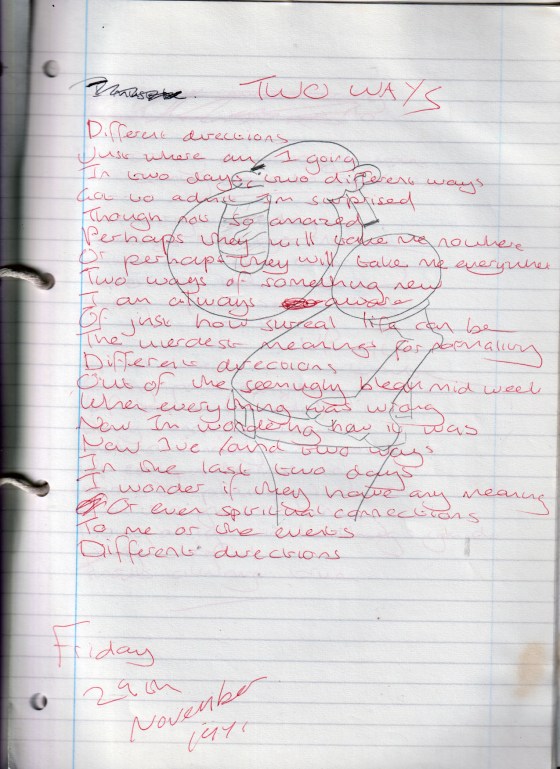 TWO WAYS
Different directions
Just where am I going
In two days two different ways
Got to admit I'm surprised
Though not so amazed
Perhaps they will take me nowhere
Or perhaps they will take me everywhere
Two ways of something new
I am always aware
Of just how surreal life can be
The weirdest meanings for
Different directions
Out of the seemingly bleak mid week
When everything was wrong
Now I'm wondering how it was
Now I've found two ways
In the last two days
I wonder if they have any meaning
Or even spiritual connections
To me or the events
Different directions
Friday
29th
November